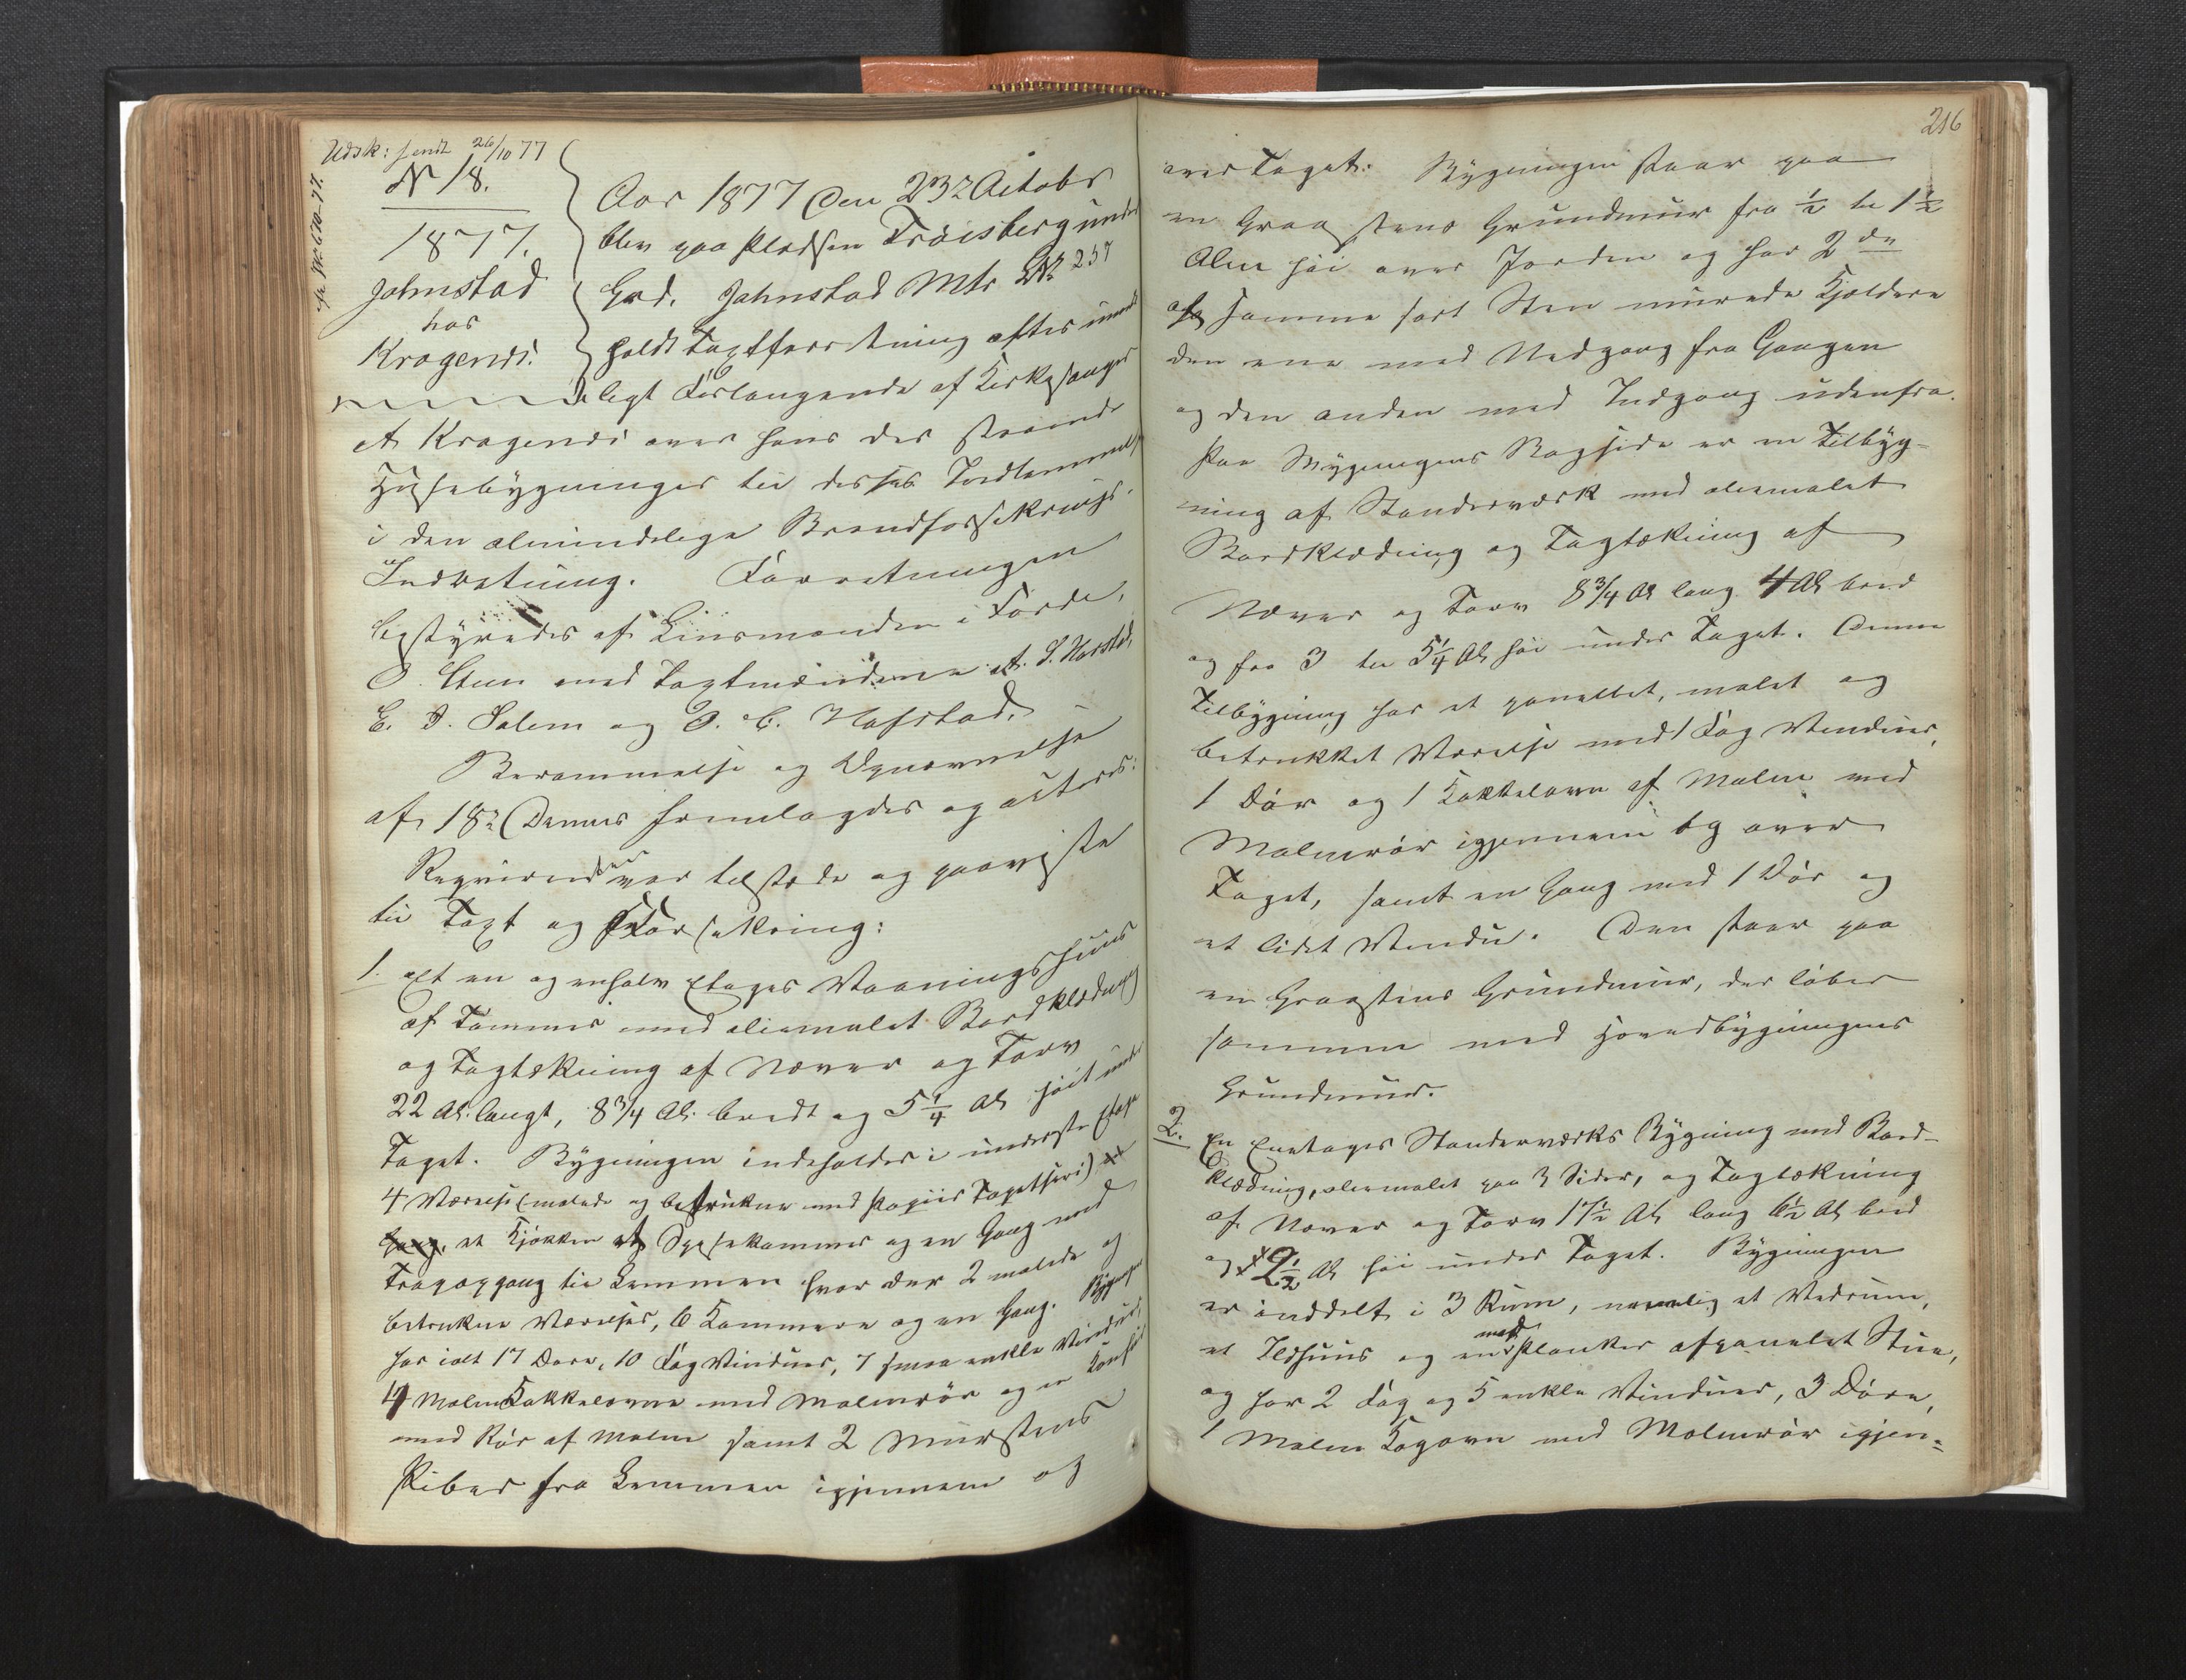 Udsk: sendt 26/10 77
N 18.
1877.
Johnstad
hos
Kragenæs.
Aar 1877 den 23de Octobr
blev paa Pladsen Fröisberg under
Grd. Jahnstad Mtr N 257
holdt Taxtforretning efter mundt
ligt Forlangende af Kirkesanger
A Kragenæs over hans der staaende
Husebygninger til disses Indlemmelse
i den almindelige Brandforsikrings-
Indretning. Forretningen
bestyredes af Linsmanden i Förde,
O. Steen med Taxtmændene A. S. Harstad,
E. J. Solem og O. C. Hafstad.
Berammelse og Opnævnelse
af 18de Dennes fremlagdes og acteres:
Reqvirenten var tilstede og paaviste
til Taxt og Forsikring:
1. Et en og enhalv Etages Vaaningshuus
af Tömmer med oliemalet Bordklædning
og Tagtækning af Næver og Torv
22 Al. langt, 8¾ Al. bredt og 5¼ Al höit under
Taget. Bygningen indeholder i underste Etage
4 Værelser (malede og betrukne med Papiir Tapetseri)
Gang, et Kjökken et Spisekammer og en Gang med
Trapopgang til Lemmen hvor der 2 malede og
betrukne Værelser, 6 Kammere og en Gang. Bygningen
har ialt 17 Döre, 10 Fag Vinduer, 7 smaa enkle Vinduer,
4 Malm Kakkelovne med Malmrör og en Komfur
med Rör af Malm samt 2 Murstens
Piber fra Lemmen igjennem og
216
over Taget. Bygningen staar paa
en Graastens Grundmuur fra ½ til 1½
Alen höi over Jorden og har 2de
af samme sort Sten murede Kjeldere
den ene med Nedgang fra Gangen
og den anden med Indgang udenfra.
Paa Bygningens Bagside er en Tilbyg-
ning af Standerværk med oliemalet
Bordklædning og Tagtækning af
Næver og Torv 8¾ Al lang 4 Al bred
og fra 3 til 5¼ Al höi under Taget. Denne
Tilbygning har et panellet, malet og
betrukket Værelse med 1 Fag Vinduer,
1 Dör og 1 Kakkelovn af Malm med
Malmrör igjennem og over
Taget, samt en Gang med 1 Dör og
et lidet Vindu. Den staar paa
en Graastens Grundmuur, der löber
sammen med Hovedbygningens
Grundmuur.
2. En Eenetages Standerværks Bygning med Bord-
klædning, oliemalet paa 3 Sider, og Tagtækning
af Næver og Torv 17½ Al lang 6½ Al bred
og 2½ Al höi under Taget. Bygningen
er inddelt i 3 Rum, nemlig et Vedrum,
et Ildhuus og en med Planker afpanelet Stue,
og har 2 Fag og 5 enkle Vinduer, 3 Döre,
1 Malm Kogovn med Malmrör igjen=